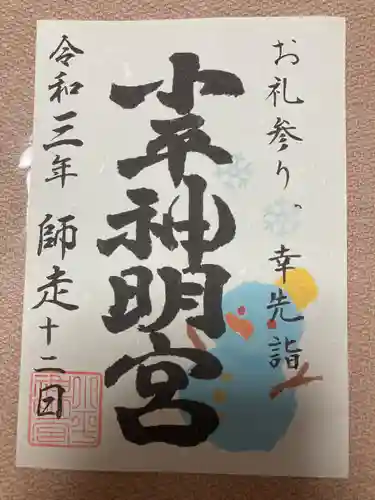 お礼参り、幸先詣
小平神明宮
令和三年 師走十二日